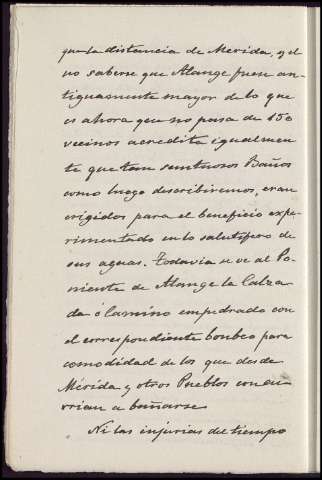 que la distancia de Merida, y el
no saberse que Alange fuese an-
tiguamente mayor de lo que
es ahora que no pasa de 150
vecinos acredita igualmen-
te que tan suntuosos Baños
como luego describiremos, eran
erigidos para el beneficio expe-
rimentado en lo salutifero de
sus aguas. Todavia se ve al Po-
niente de Alange la Calza-
da ó Camino empedrado con
el correspondiente bombeo para
comodidad de los que desde
Mérida y otros Pueblos concu-
rrian a bañarse
Ni las injurias del tiempo